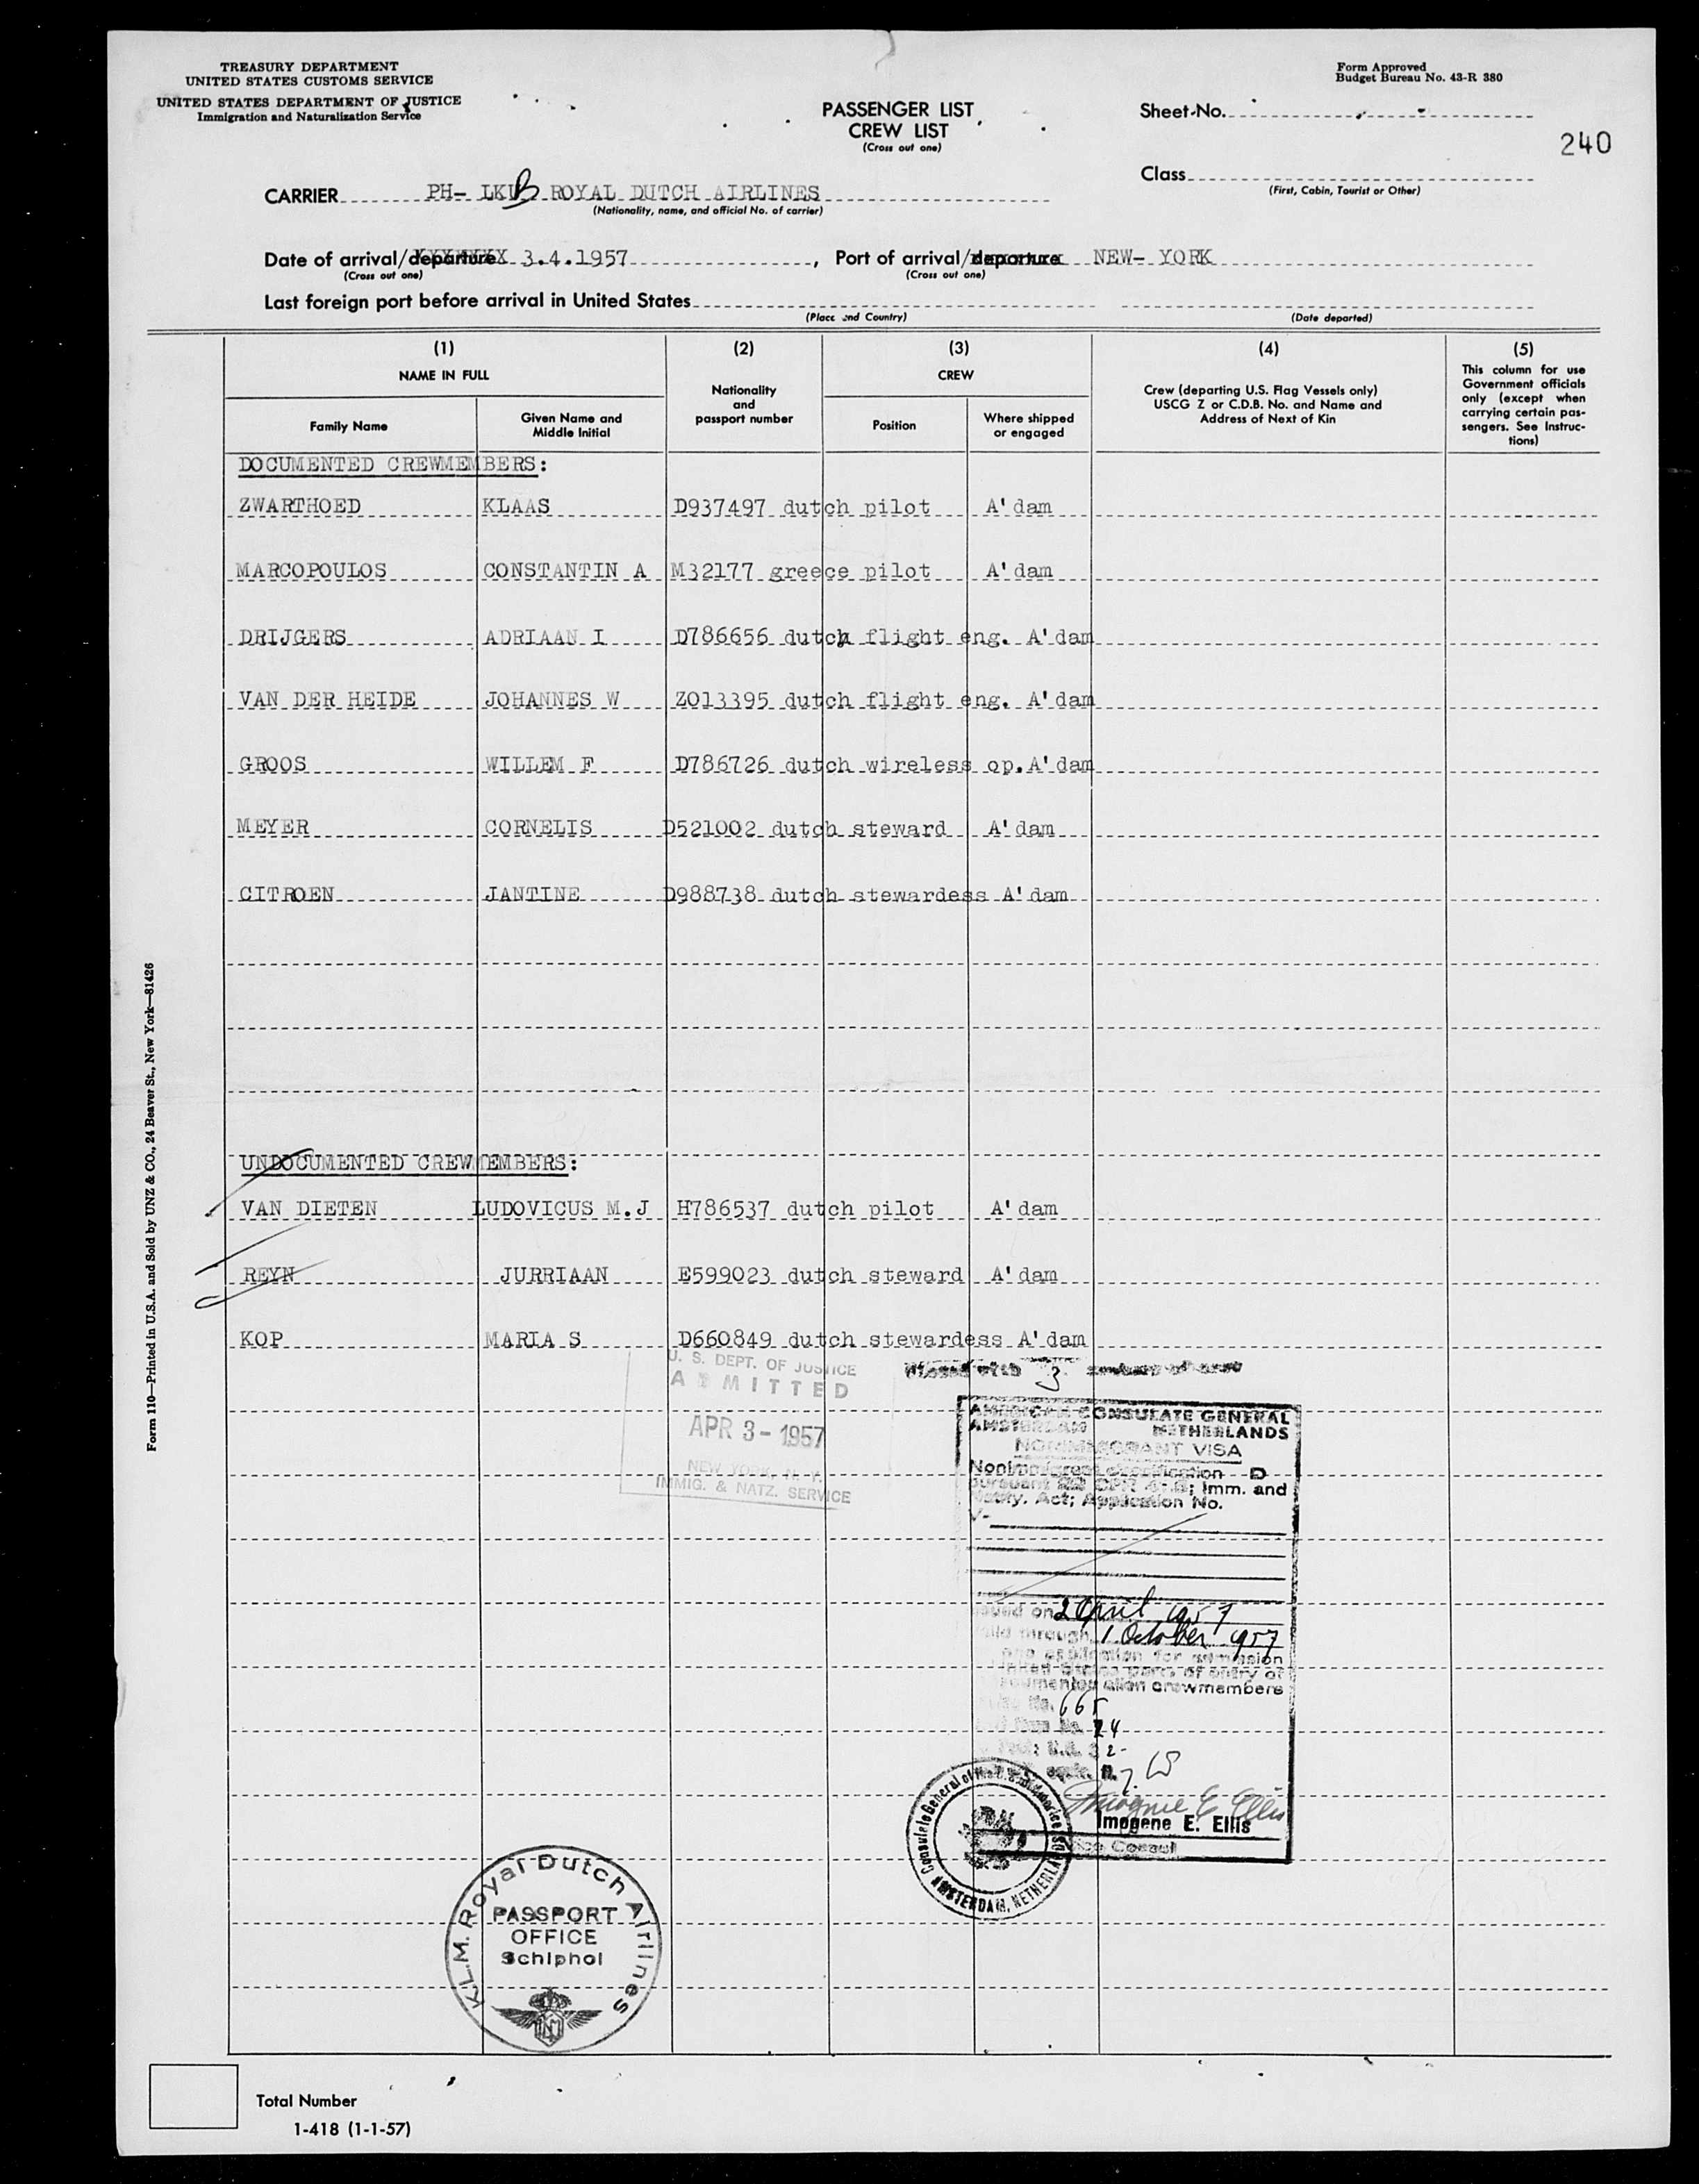 TREASURY DEPARTMENT
UNITED STATES CUSTOMS SERVICE
UNITED STATES DEPARTMENT OF JUSTICE
Immigration and Naturalization Service
PASSENGER LIST
CREW LIST
(Cross out one)
Form Approved
Budget Bureau No. 43-R 380
Sheet No.
240
Class
(First, Cabin, Tourist or Other)
CARRIER PH- LKB ROYAL DUTCH AIRLINES
(Nationality, name, and official No. of carrier)
Date of arrival/departure 3.4.1957, Port of arrival/departure NEW- YORK
(Cross out one) (Cross out one)
Last foreign port before arrival in United States
(Place and Country) (Date departed)
(1) (2) (3) (4) (5)
NAME IN FULL
Family Name
Given Name and
Middle Initial
Nationality
and
passport number
CREW
Position
Where shipped
or engaged
Crew (departing U.S. Flag Vessels only)
USCG Z or C.D.B. No. and Name and
Address of Next of Kin
This column for use
Government officials
only (except when
carrying certain pas-
sengers. See Instruc-
tions)
DOCUMENTED CREWMEMBERS:
ZWARTHOED KLAAS D937497 dutch pilot A'dam
MARCOPOULOS CONSTANTIN A M32177 greece pilot A'dam
DRIJGERS ADRIAAN I D786656 dutch flight eng. A'dam
VAN DER HEIDE JOHANNES W Z013395 dutch flight eng. A'dam
GROOS WILLEM F D786726 dutch wireless op. A'dam
MEYER CORNELIS D521002 dutch steward A'dam
CITROEN JANTINE D988738 dutch stewardess A'dam
UNDOCUMENTED CREWMEMBERS:
VAN DIETEN LUDOVICUS M.J H786537 dutch pilot A'dam
REYN JURRIAAN E599023 dutch steward A'dam
KOP MARIA S D660849 dutch stewardess A'dam
U. S. DEPT. OF JUSTICE
ADMITTED
APR 3 - 1957
NEW YORK, N. Y.
IMMIG. & NATZ. SERVICE
with 3
AMERICAN CONSULATE GENERAL
AMSTERDAM NETHERLANDS
NONIMMIGRANT VISA
Nonimmigrant classification D
pursuant 22 CFR; Imm. and
Natly. Act; Application No.
V-
issued on 2 April 1957
valid through 1 October 1957
application for admission
United States ports of entry of
alien crewmembers
No. 665
No. 24
2-
Imogene E. Ellis
Imogene E. Ellis
Vice Consul
Consulate General of
AMSTERDAM, NETHERLANDS
K.L.M. Royal Dutch Airlines
PASSPORT
OFFICE
Schiphol
Form 110—Printed in U.S.A. and Sold by UNZ & CO., 24 Beaver St., New York—81426
Total Number
1-418 (1-1-57)